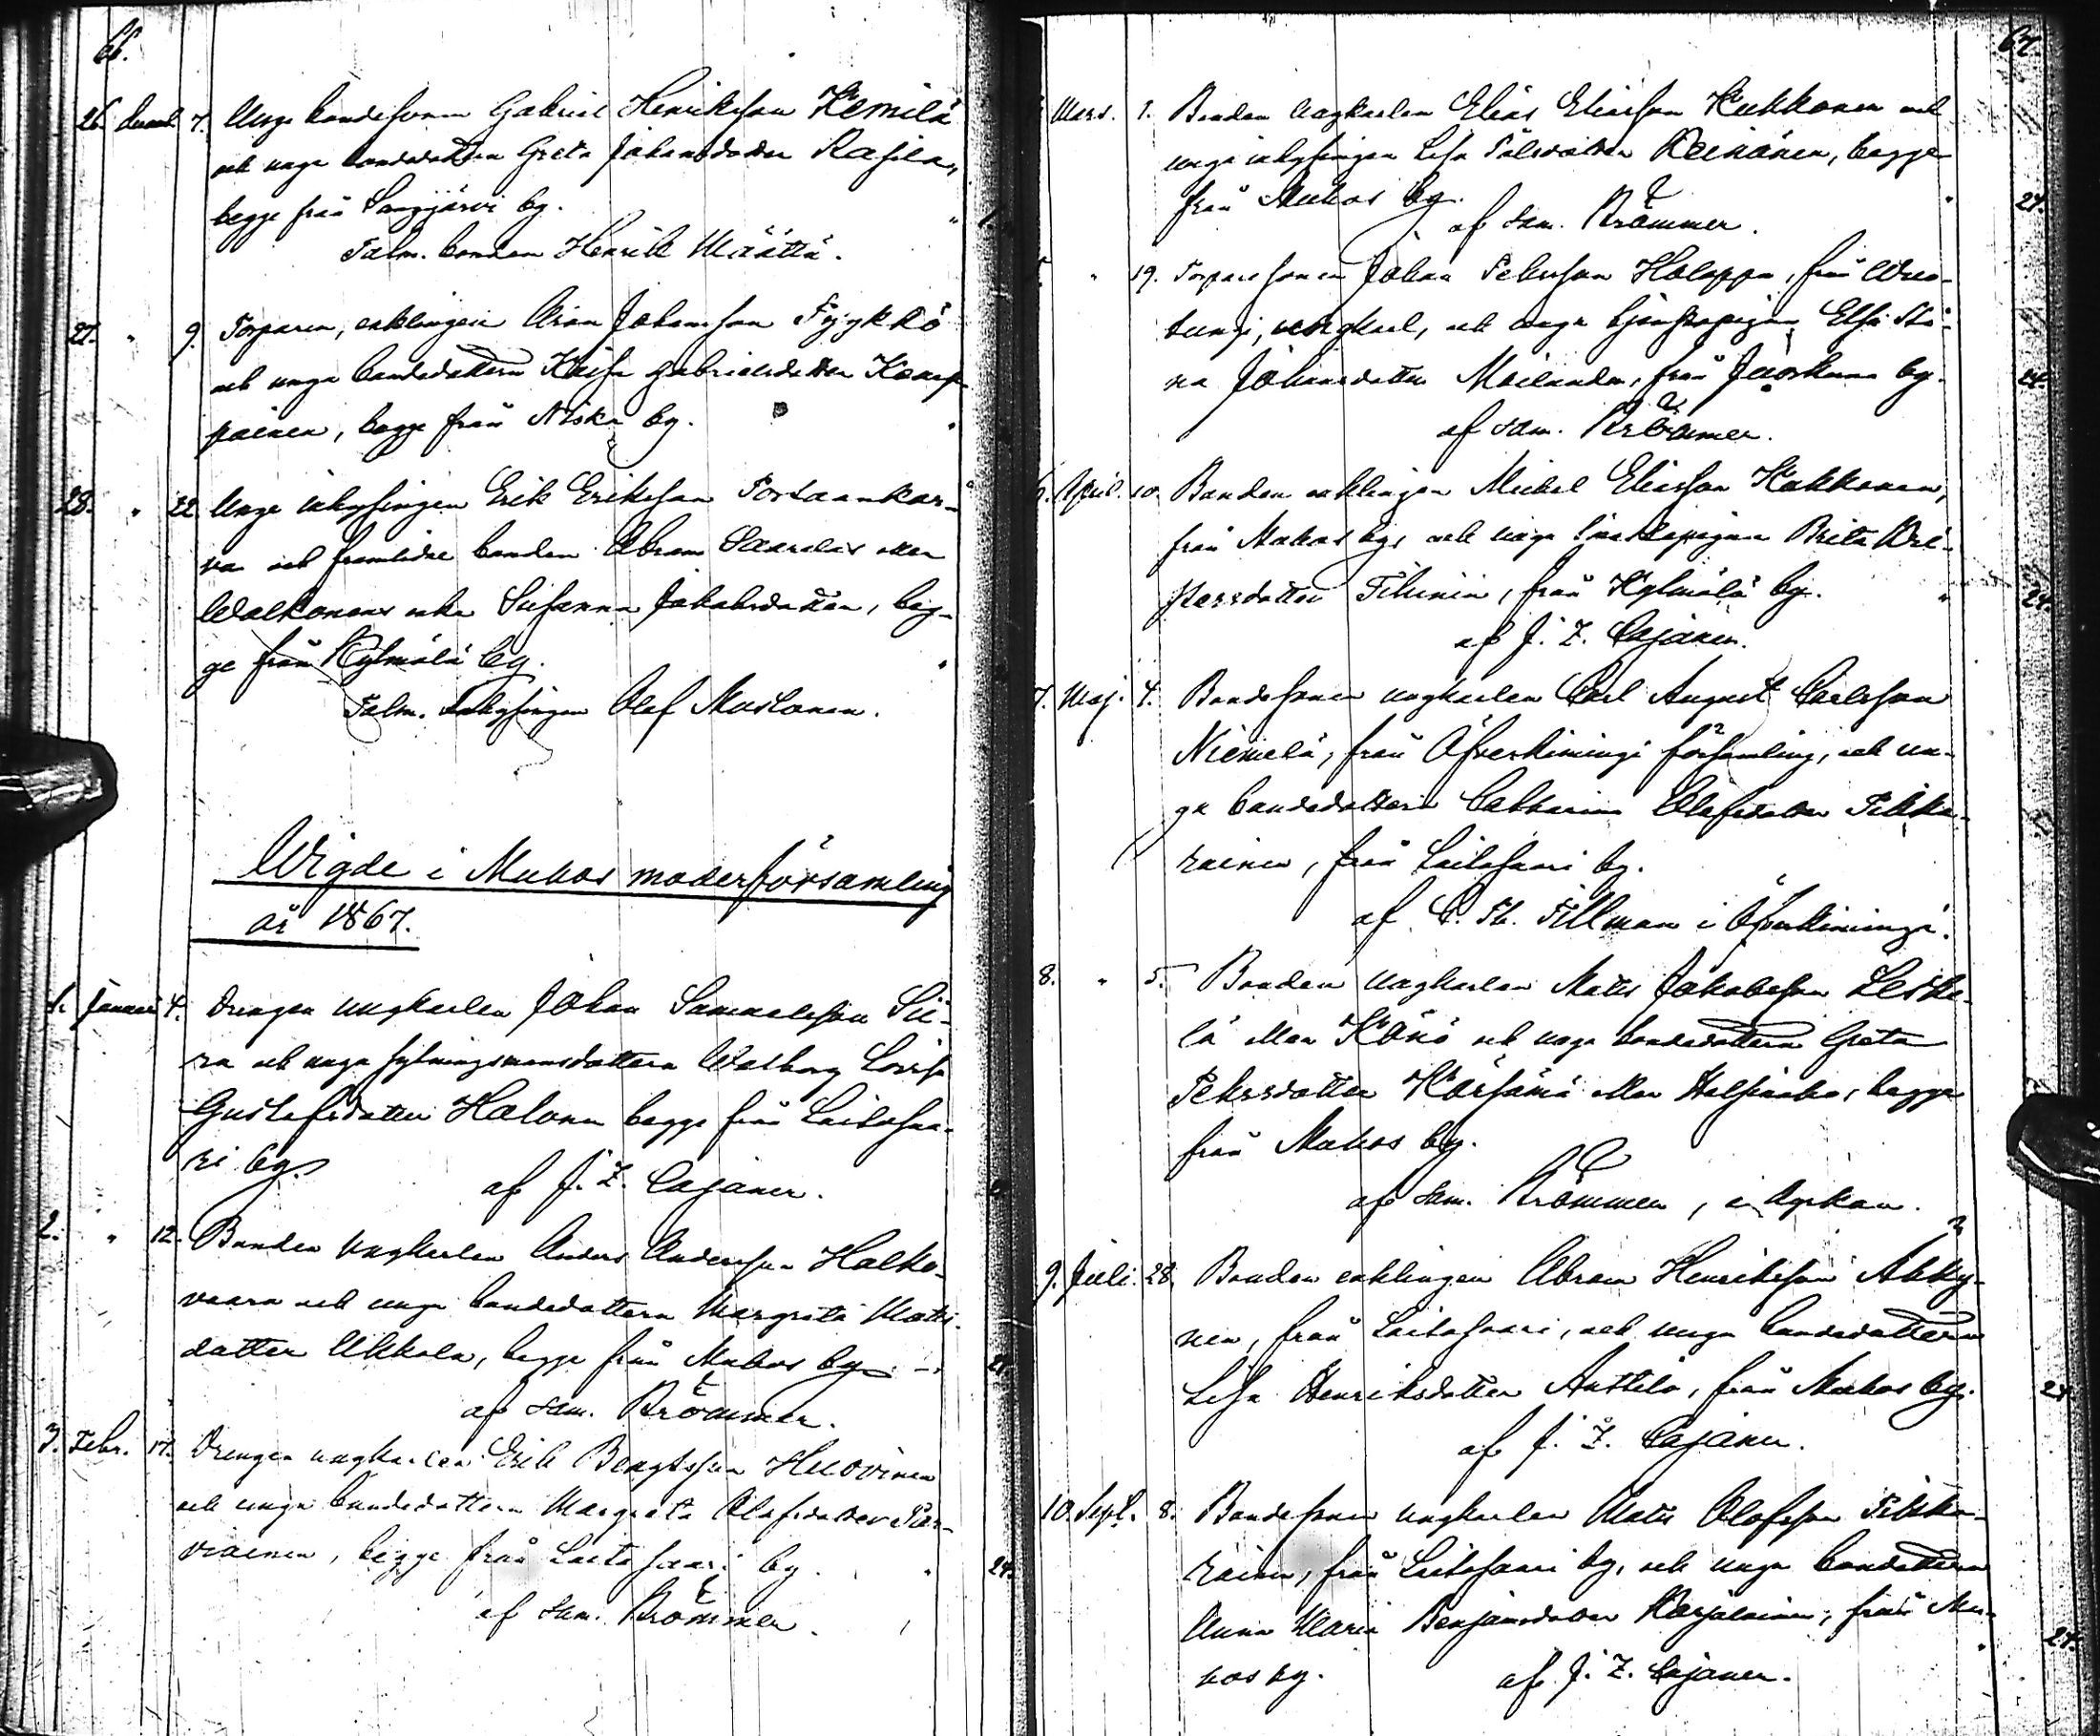 66.
26. Decemb. 7. Unge bondesonen Gabriel Henriksson Kemilä
och unga bondedottren Greta Johansdotter Rajila,
begge från Sangijärvi by.
Talm. bonden Henrik Määttä.
27. " 9. Torparen, enklingen Aron Johansson Pyykkö
och unga bondedottren Kajsa Gabrielsdotter Kemp-
painen, begge från Niska by.
28. " 22. Unge inhysingen Erik Eriksson Torvaankar-
va och framlidne bonden Abram
Walkonens enka Susanna Jakobsdotter, beg-
ge från Kylmälä by.
Talm. Inhysingen Olof Mustonen.
Wigde i Muhos moderförsamling
år 1867.
1. Januari 4. Drengen ungkarlen Johan Samuelsson Sii-
ra och unga Walborg Lovisa
Gustafsdotter Halonen begge från Laitasaa-
ri by.
af J. Z. Cajaner.
2. " 12. Bonden Ungkarlen Anders Andersson Halko-
vaara och unga bondedottern Margreta Matts-
dotter Ukkola, begge från Muhos by 24.
af Sam. Krömmer.
3. Febr. 17. Drengen ungkarlen Erik Bengtsson Huovinen
och unga bondedottern Margreta Olofsdotter Par-
viainen, begge från Laitasaari by. 24.
af Sam. Krömmer.
67.
Mars. 1. Bonden Ungkarlen Elias Eliasson Kukkonen och
unga inhysingen Lisa Pålsdotter Reinänen, begge
från Muhos by. 24.
af Sam. Krömmer.
" 19. Torparesonen Johan Petersson Holappa, från Utta-
ungkarl, och unga tjenstepigan Elsa Sti-
na Johansdotter Mailander, från by. 24.
af Sam. Krömmer.
6. April. 10. Bonden enklingen Mickel Eliasson Kukkonen,
från Muhos by, och unga tjenstepigan Brita Kri-
stersdotter Tihinen, från Kylmälä by. 24.
af J. Z. Cajaner.
7. Maj. 4. Bondesonen ungkarlen Carl August Carlsson
Niemelä, från Öfverkimingi församling, och un-
ga bondedottern Catharina Olofsdotter Pikka-
rainen, från Laitasaari by.
af C. Th. Tillman i Öfverkimingi.
8. " 5. Bonden Ungkarlen Mats Jakobsson Leske-
lä eller Könö och unga bondedottern Greta
Petersdotter Kärsämä eller begge
från Muhos by.
af Sam. Krömmer, i kyrkan.
9. Juli. 28. Bonden enklingen Abram Henriksson Alky-
nen, från Laitasaari, och unga bondedottern
Lisa Henriksdotter Anttila, från Muhos by. 24.
af J. Z. Cajaner.
10. Sept. 8. Bondesonen ungkarlen Mats Olofsson Pikka-
rainen, från Laitasaari by, och unga bondedottern
Anna Maria Benjamsdotter Karjalainen, från Mu-
hos by. 24.
af J. Z. Cajaner.